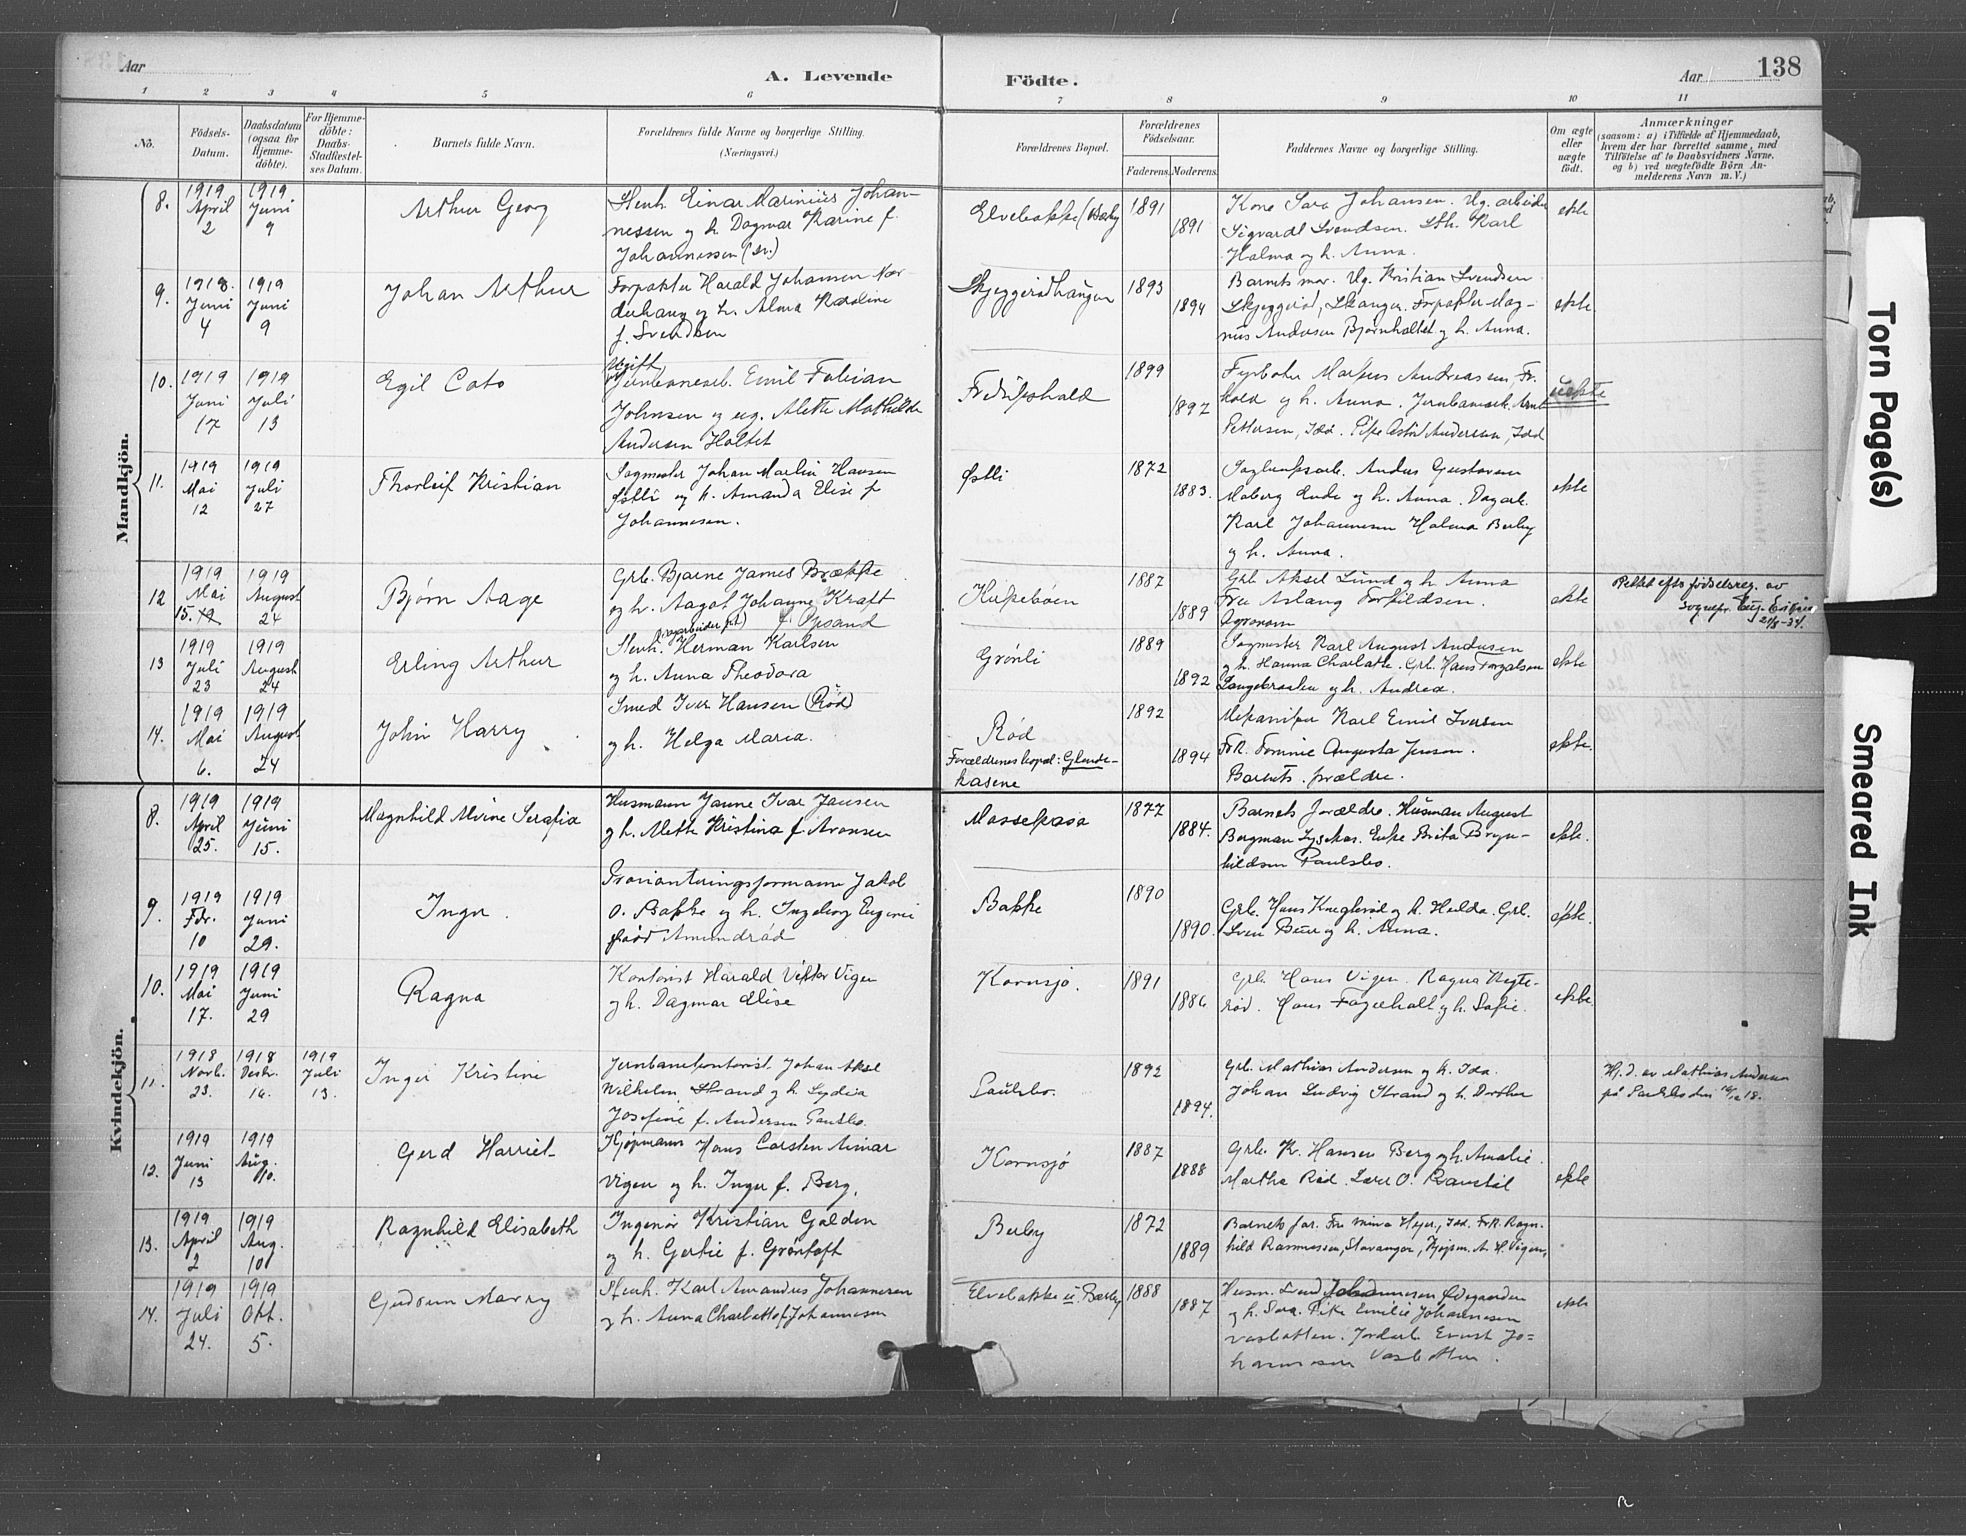 Aar
A. Levende
Födte.
Aar
138
1 2 3 4 5 6 7 8 9 10 11
No.
Födsels-
Datum.
Daabsdatum
(ogsaa for
Hjemme-
döbte).
For Hjemme-
döbte:
Daabs-
Stadfestel-
ses Datum.
Barnets fulde Navn.
Forældrenes fulde Navne og borgerlige Stilling.
(Næringsvei.)
Forældrenes Bopæl.
Forældrenes
Födselsaar.
Faderens. Moderens.
Faddernes Navne og borgerlige Stilling.
Om ægte
eller
uægte
födt.
Anmærkninger
(saasom: a) i Tilfælde af Hjemmedaab,
hvem der har forrettet samme, med
Tilföielse af to Daabsvidners Navne,
og b) ved uægtefödte Börn An-
melderens Navn m. V.)
Mandkjön.
8. 1919 April 2
1919 Juni 9
Arthur Georg
Stenh. Einar Marinius Johan-
nessen og h. Dagmar Karine f.
Johannessen
Elvebakke (Berby
1891
1891
Kone Sara Johansen. Ug. arbeider
Sigvardt Svendsen. Sth. Karl
Holmo og h. Anna.
ekte
9. 1918. Juni 4
1919 Juni 9
Johan Arthur
Forpakter Harald Johansen Nor-
derhaug og h. Alma Karoline
f. Svendsen
Skjeggerødhaugen
1893
1894
Barnets mor. Ug. Kristian Svendsen
Skjeggerød, Forpakter Mag-
nus Andersen Bjørnholtet og h. Anna.
ekte.
10. 1919 Juni 17
1919 Juli 13
Egil Cato
Ugift
Jernbanearb. Emil Fabian
Johnsen og ug. Alette Mathilde
Andersen Holtet
Fredrikshald
1899
1897
Fyrbøter Markus Andreassen, Fr.
hald og h. Anna. Jernbanearb. Arnt
Pettersen, Idd. Pike Astrid Andersen, Idd
uekte
11. 1919 Mai 12
1919 Juli 27
Thorleif Kristian
Sagmester Johan Martin Hansen
Østli og h. Amanda Elise f
Johannesen.
Østli
1872
1883.
Sagbruksarb. Anders Gustavsen
Moberg Ende og h. Anna. Dagarb.
Karl Johannesen Holmo Berby
og h. Anna.
ekte
12 1919 Mai 15. 19
1919 August 24
Bjørn Aage
Grb. Bjarne James Brække
og h. Aagot Johanne Kraft
f. Opsand
Kirkebøen
1887
1889
Grb. Aksel Lund og h. Anna
Fru Aslaug Torkildsen.
Agronom
ekte
Rettet efter fødselsreg. av
Sognepr. Eug. Eriksen
21/8-34.
13 1919 Juli 23
1919 August 24
Erling Arthur
(Dagarbeider)
Stenh. Herman Karlsen
og h. Anna Theodora
Grønli
1889
1892
Sagmester Karl August Andersen
og h. Hanna Charlotte. Grb. Hans Torgalsen
Langebraaten og h. Andrea.
ekte
14. 1919 Mai 6.
1919 August 24
John Harry
Smed Iver Hansen (Rød)
og h. Helga Maria.
Rød
Forældrenes bopæl: Glende-
kasene
1892
1894
Mekaniker Karl Emil Iversen
Frk. Tomine Augusta Jensen.
Barnets forældre.
ekte.
Kvindekjön.
8. 1919 April 25.
1919 Juni 15.
Magnhild Alvine Serafia
Husmann Janne Ivar Jansen
og h. Mette Kristina f Aronsen
Mossekasa
1877
1884.
Barnets forældre. Husman August
Bergman Enke Brita Bryn-
hildsen Paulsbo.
ekte.
9. 1919 Febr. 10
1919 Juni 29.
Inger.
Provianteringsformann Jakob
O. Bakke og h. Ingeborg Eugenie
født Amundrød
Bakke
1890
1890.
Grb. Hans Kneglerød og h. Hulda. Grb.
Sven Buer og h. Anna.
ekte.
10. 1919 Mai 17.
1919 Juni 29
Ragna
Kontorist Harald Viktor Vigen
og h. Dagmar Elise
Kornsjø.
1891
1886
Grb. Hans Vigen. Ragna Negte-
rød. Hans Fagerholt og h. Sofie.
ekte.
11. 1918 Novb. 23.
1918 Desbr. 16.
1919 Juli 13.
Inger Kristine
Jernbanekontorist Johan Aksel
Wilhelm Strand og h. Lydia
Josefine f. Andersen Paulsbo.
Paulsbo.
1892
1894.
Grb. Mathias Andersen og h. Ida.
Johan Ludvig Strand og h. Dorthea
Hj. d. av Mathias Andersen
på Paulsbo den 16/12 18.
12. 1919 Juni 13
1919 Aug. 10.
Gerd Harriet
Kjøpmann Hans Carsten Aimar
Vigen og h. Inger f. Berg.
Kornsjø
1887
1888
Grb. K. Hansen Berg og h. Amalie.
Martha Rød. Lærer O. Ramstøl
ekte
13. 1919 April 2
1919 Aug. 10
Ragnhild Elisabeth
Ingeniør Kristian Golden
og h. Gertie f. Grøntoft
Berby
1872
1889
Barnets far. Fru Mina Heyer, Idd. Frk. Ragn-
hild Rasmussen, Stavanger, Kjøpm. A. H. Vigen,
14. 1919 Juli 24.
1919 Okt. 5.
Gudrun Marry
Stenh. Karl Amandus Johannesen
og h. Anna Charlotte f Johannesen
Elvebakke u. Berby
1888
1887
Husm. Svend Johannesen Ødegaarden
og h. Sara. Pike Emilie Johannesen
Vasbotten. Jordarb. Ernst Jo=
hannessen Vasbotten.
ekte
Torn Page(s)
Smeared Ink